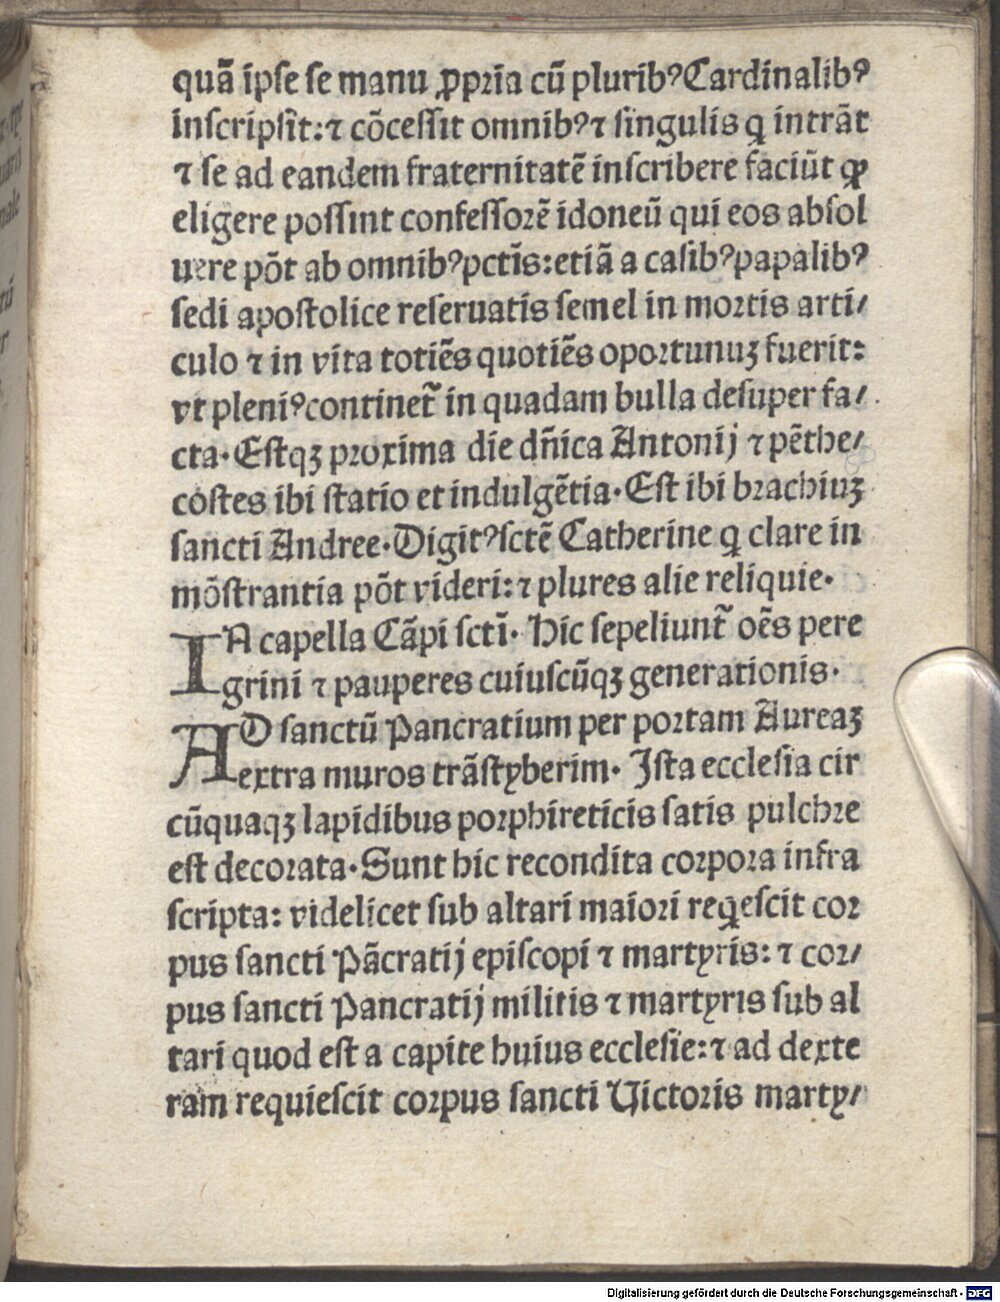 quā ipſe ſe manu ꝓpꝛia cū plurib⁹ Cardinalib⁹
inſcripſit: ⁊ cōceſſit omnib⁹ ⁊ ſingulis q̇ intrāt
⁊ ſe ad eandem fraternitatē inſcribere faciūt ꝙ
eligere poſſint confeſſoꝛē idoneū qui eos abſol
uere pōt ab omnib⁹ pctīs: etiā a caſib⁹ papalib⁹
ſedi apoſtolice reſeruatis ſemel in moꝛtis arti/
culo ⁊ in vita totiēs quotiēs opoꝛtunuꝫ fuerit:
vt pleni⁹ continet̄ in quadam bulla deſuper fa/
cta. Eſtqꝫ pꝛoxima die dn̄ica Antonij ⁊ pēthe/
coſtes ibi ſtatio et indulgētia. Eſt ibi bꝛachiuꝫ
ſancti Andree. Digit⁹ ſctē Catherine q̇ clare in
mōſtrantia pōt videri: ⁊ plures alie reliquie.
IN capella Cāpi ſctī. Hic ſepeliunt̄ oēs pere
grini ⁊ pauperes cuiuſcūqꝫ generationis.
AD ſanctū Pancratium per poꝛtam Aureaꝫ
extra muros trāſtyberim. Iſta eccleſia cir
cūquaqꝫ lapidibus poꝛphireticis ſatis pulchꝛe
eſt decoꝛata. Sunt hic recondita coꝛpoꝛa infra
ſcripta: videlicet ſub altari maioꝛi req̇eſcit coꝛ
pus ſancti Pācratij epiſcopi ⁊ martyris: ⁊ coꝛ/
pus ſancti Pancratij militis ⁊ martyris ſub al
tari quod eſt a capite huius eccleſie: ⁊ ad dexte
ram requieſcit coꝛpus ſancti Victoꝛis marty/
Digitalisierung gefördert durch die Deutsche Forschungsgemeinschaft - DFG